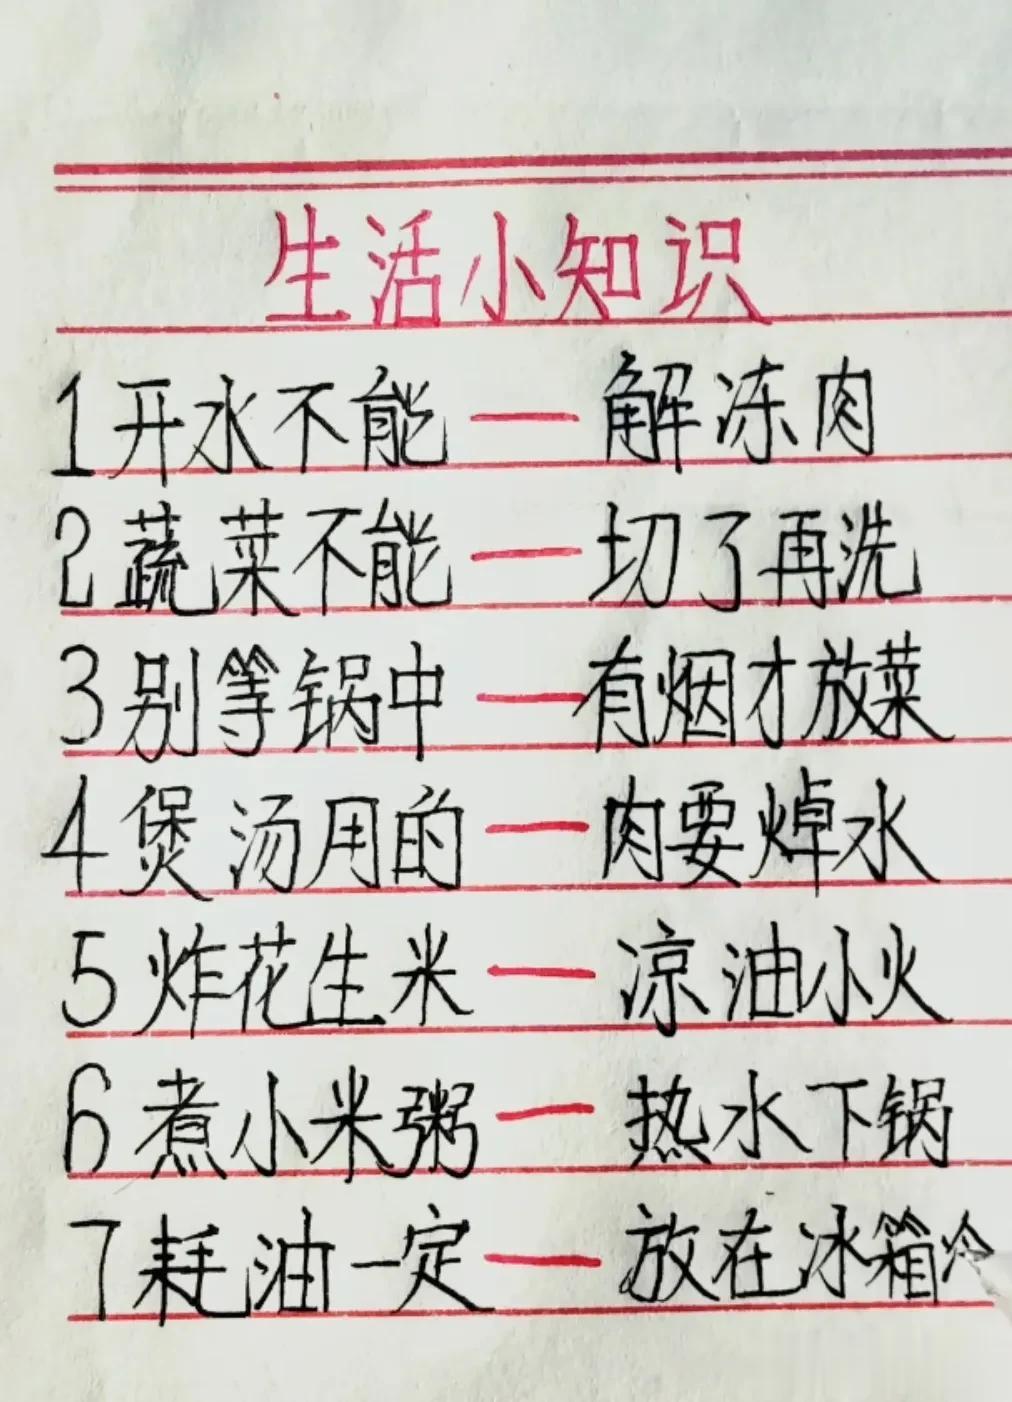 生活小知识
1开水不能—解冻肉
2蔬菜不能—切了再洗
3别等锅中—有烟才放菜
4煲汤用的—肉要焯水
5炸花生米—凉油小火
6煮小米粥—热水下锅
7耗油一定—放在冰箱